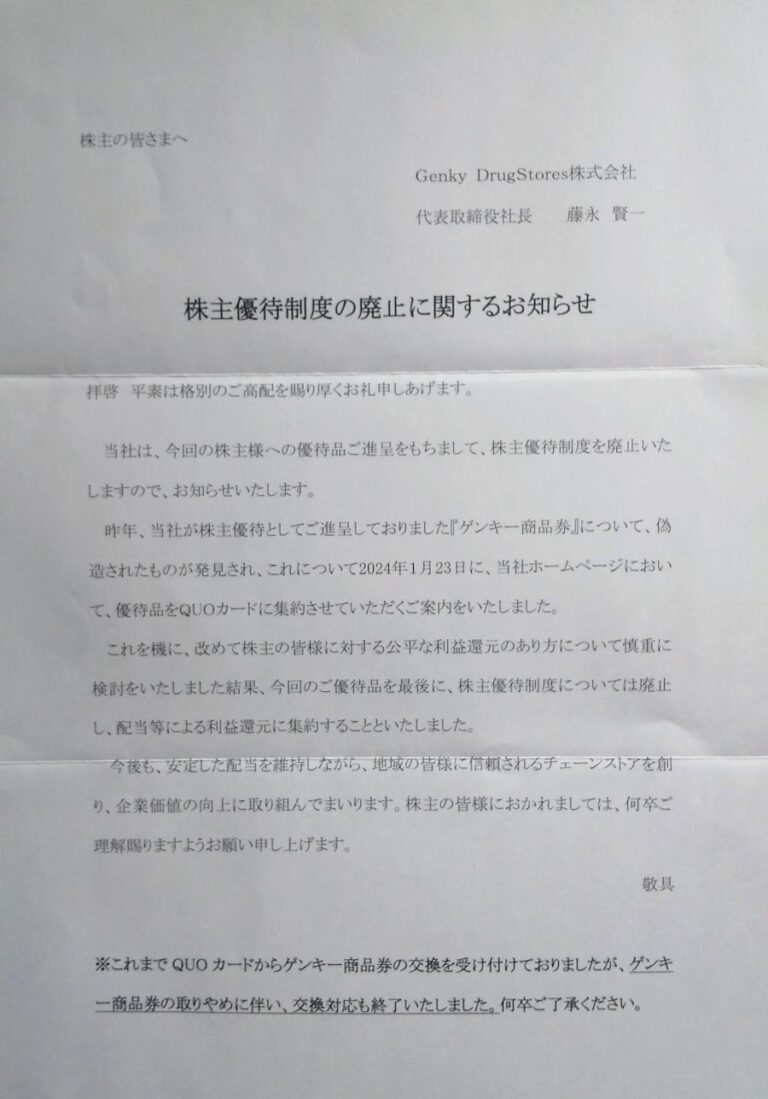 株主の皆さまへ
Genky DrugStores株式会社
代表取締役社長　藤永 賢一
株主優待制度の廃止に関するお知らせ
拝啓 平素は格別のご高配を賜り厚くお礼申しあげます。
当社は、今回の株主様への優待品ご進呈をもちまして、株主優待制度を廃止いた
しますので、お知らせいたします。
昨年、当社が株主優待としてご進呈しておりました『ゲンキー商品券』について、偽
造されたものが発見され、これについて2024年1月23日に、当社ホームページにおい
て、優待品をQUOカードに集約させていただくご案内をいたしました。
これを機に、改めて株主の皆様に対する公平な利益還元のあり方について慎重に
検討をいたしました結果、今回のご優待品を最後に、株主優待制度については廃止
し、配当等による利益還元に集約することといたしました。
今後も、安定した配当を維持しながら、地域の皆様に信頼されるチェーンストアを創
り、企業価値の向上に取り組んでまいります。株主の皆様におかれましては、何卒ご
理解賜りますようお願い申し上げます。
敬具
※これまで QUO カードからゲンキー商品券の交換を受け付けておりましたが、ゲンキ
ー商品券の取りやめに伴い、交換対応も終了いたしました。何卒ご了承ください。